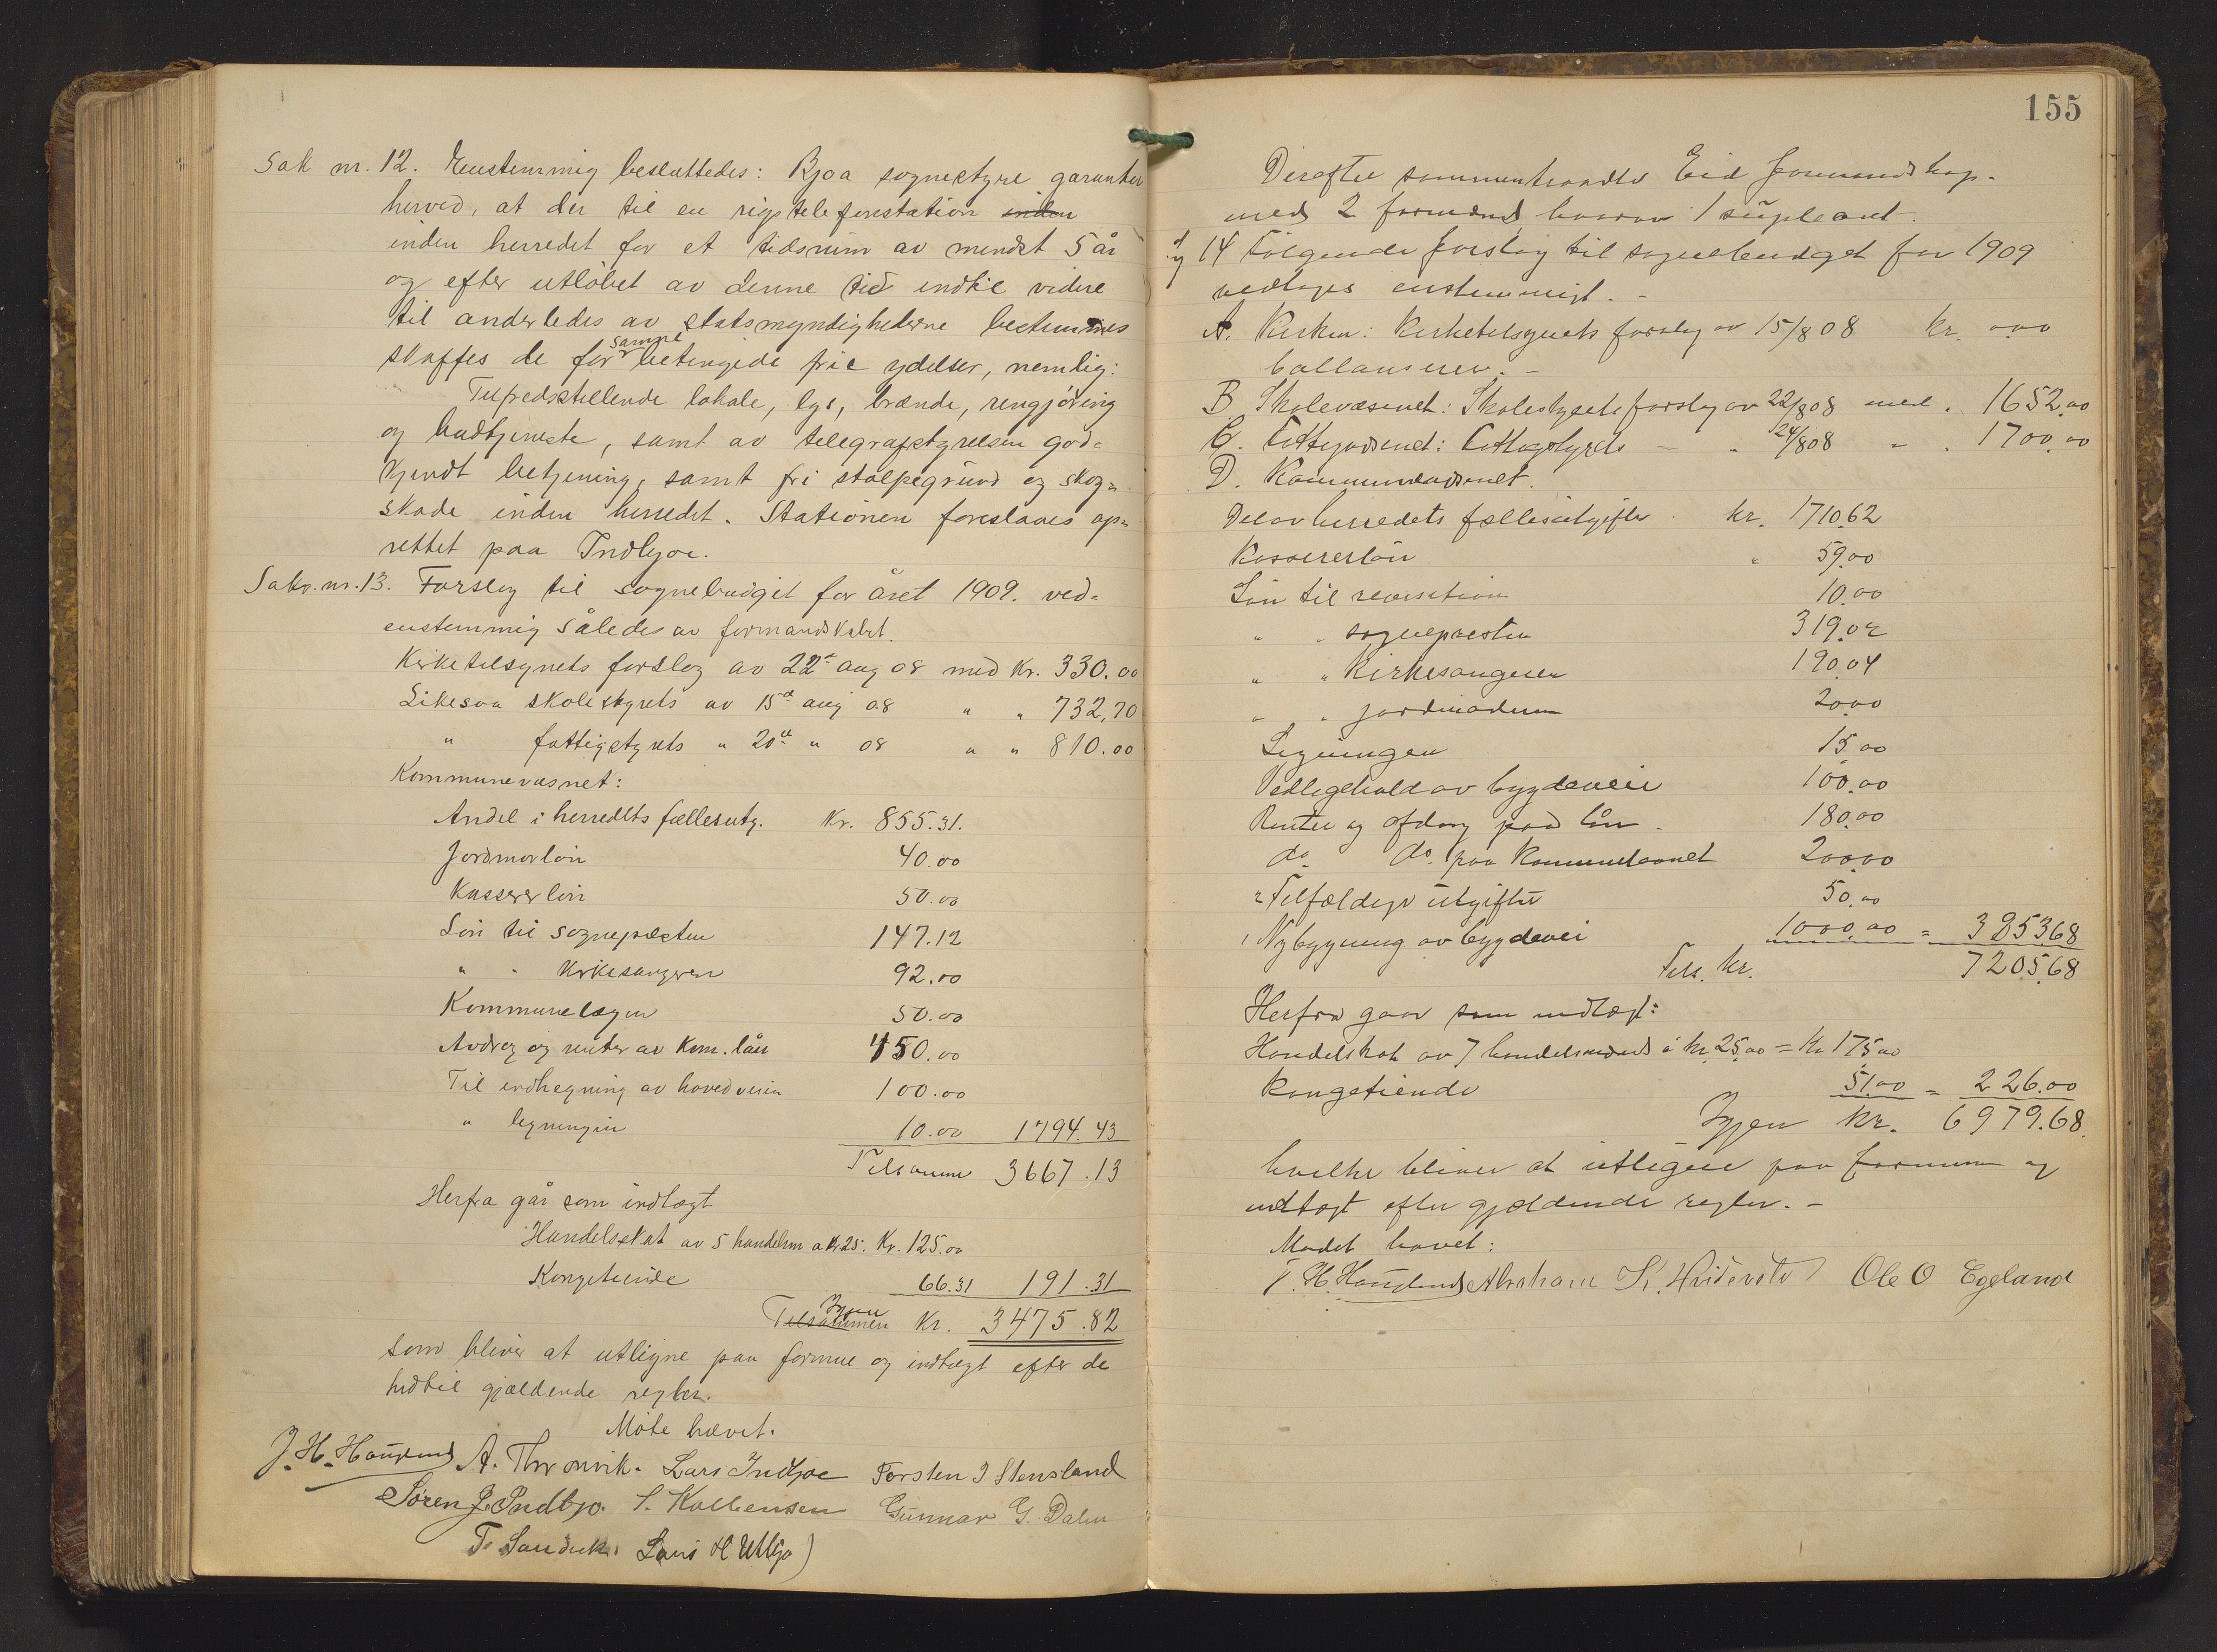 Sak nr. 12. Enstemmig besluttedes: Bjoa sognestyre garanter
herved, at der til en rigstelefonstation inden
inden herredet for et tidsrum av mindst 5 år
og efter utløbet av denne tid indtil videre
til anderledes av statsmyndighederne bestemmes
samme
skaffes de for betingede frie ydelser, nemlig:
Tilfredsstillende lokale, lys, brænde, rengjöring
og budtjeneste, samt av telegrafstyrelsen god=
kjendt betjening, samt fri stolpegrund og skog=
skade inden herredet. Stationen foreslaaes op=
rettet paa Indbjoe.
Saks.nr.13. Forslag til sognebudget for året 1909. ved=
enstemmig således av formandskabet.
Kirketilsynets forslag av 22de aug 08 med Kr. 330.00
Likesaa skolestyrets av 15de aug 08 " " 732,70
" fattigstyrets " 20de " 08 " " 810.00
Kommunevæsnet:
Andel i herredets fællesutg. Kr. 855.31.
Jordmorløn 40.00
Kassererløn 50.00
Løn til sognepresten 147.12
" " Kirkesangeren 92.00
Kommunelægen 50.00
Avdrag og renter av Kom. lån 450.00
Til indhegning av hovedveien 100.00
" ligningen 10.00 1794.43
Tilsammen 3667.13
Herfra går som indtægt
Handelsskat av 5 handelsm a Kr 25. Kr. 125.00
Kongetiende 66.31 191.31
Igjen
Tilsammen Kr. 3475.82
som bliver at utligne paa formue og indtægt efter de
hidtil gjældende regler.
Møte hævet.
J. H. Haugland A. Thronvik. Lars Indbjoe Torsten J Stensland
Søren J. Indbjo. S. Kolbensen Gunnar G. Dalen
T. Sandvik. Lars H Utbjo)
155
Derefter sammentraadte Eid formandskap
med 2 formænd, hvorav 1 supleant.
14 Følgende forslag til sognebudget for 1909
vedtoges enstemmigt. -
A. Kirken: Kirketilsynets forslag av 15/8 08 kr. 000
ballanserer. -
B Skolevæsenet: Skolestyrets forslag av 22/8 08 med . 1652.00
C. Fattigvæsenet: Fattigstyrets - " 24/8 08 - . 1700.00
D. Kommunevæsenet.
Del av herredets fællesutgifter kr. 1710.62
Kassererløn " 59.00
Løn til revisction 10.00
" " sognepresten 319.02
" " Kirkesangeren 190.04
" " jordmoderen 20.00
Ligningen 15.00
Vedligehold av bygdeveie 100.00
Renter og afdrag paa lån 180.00
do. do. paa Kommunelaanet 200.00
" Tilfældige utgifter 50.00
Nybygning av bygdevei 1000.00 = 3853.68
Tils. kr. 7205.68
Herfra gaar som indtægt:
Handelskat av 7 handelsmænd à kr. 25.00 = Kr 175.00
Kongetiende 51.00 = 226.00
Igjen Kr. 6979.68
hvilke bliver at utligne paa formue og
indtægt efter gjældende regler. -
Mødet hævet:
J. H. Haugland Abraham K. Ole O Egeland